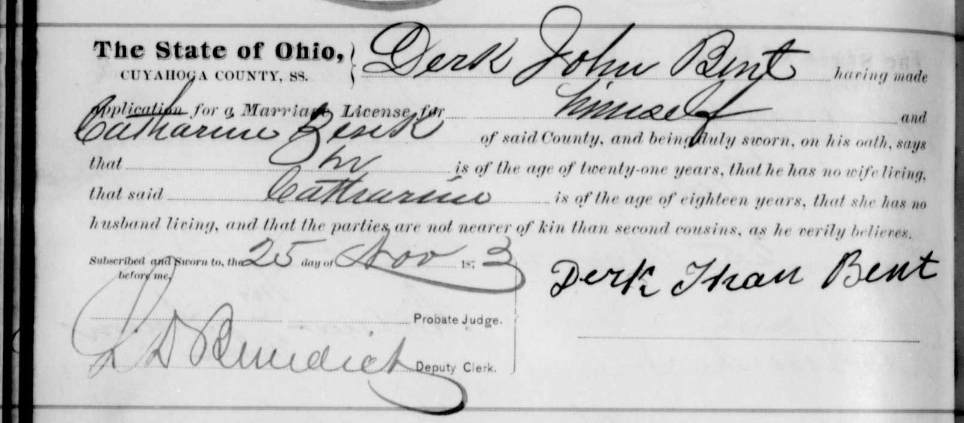 The State of Ohio, } Derk John Bent having made
CUYAHOGA COUNTY, SS.
Application for a Marriage License for himself and
Catharine of said County, and being duly sworn, on his oath, says
that he is of the age of twenty-one years, that he has no wife living,
that said Catharine is of the age of eighteen years, that she has no
husband living, and that the parties are not nearer of kin than second cousins, as he verily believes.
Subscribed and Sworn to, the 25 day of Nov 1873
before me, Derk Bent
Probate Judge.
D Benedict Deputy Clerk.